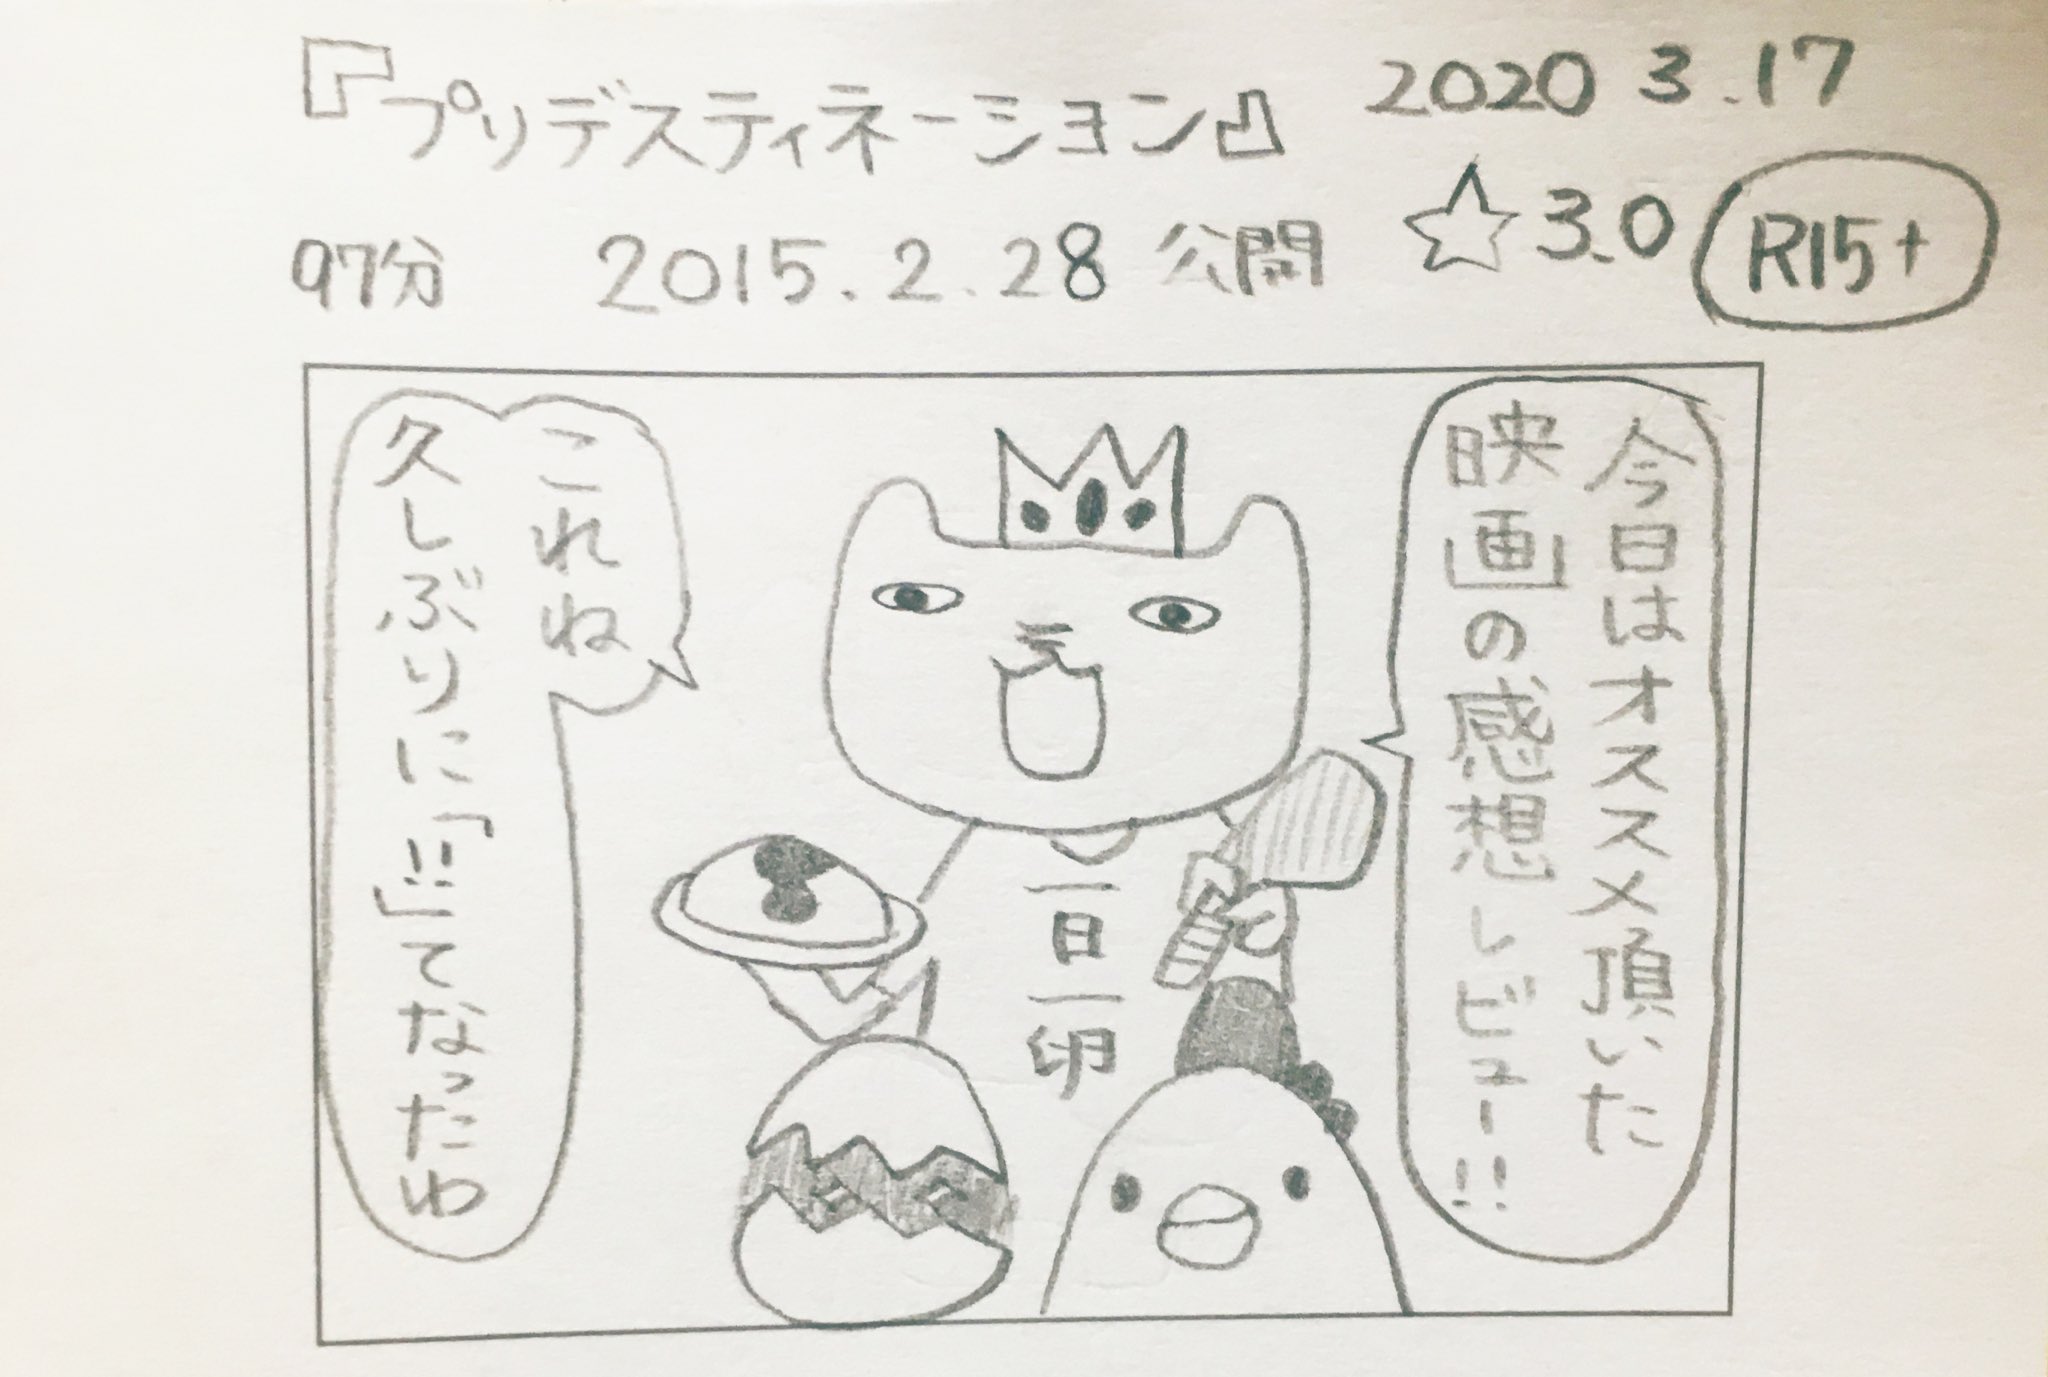 『プリデスティネーション』
2020 3.17
97分 2015.2.28 公開
☆3.0
R15+
今日はオススメ頂いた
映画の感想レビュー!!
一日一卵
これね
久しぶりに「!!」てなったわ